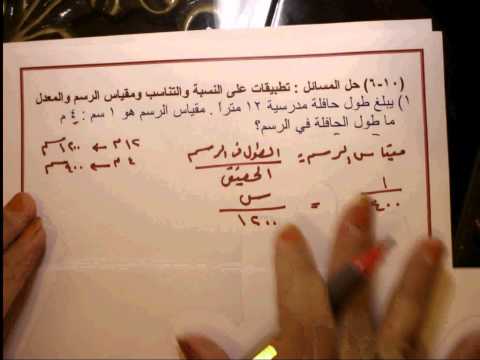 (٦-١٠) حل المسائل : تطبيقات على النسبة والتناسب ومقياس الرسم والمعدل
١) يبلغ طول حافلة مدرسية ١٢ متراً . مقياس الرسم هو ١ سم : ٤ م
ما طول الحافلة في الرسم؟
مقياس الرسم = الطول في الرسم / الحقيقي
١٢ م ← ١٢٠٠ سم
٤ م ← ٤٠٠ سم
١ / ٤٠٠ = س / ١٢٠٠